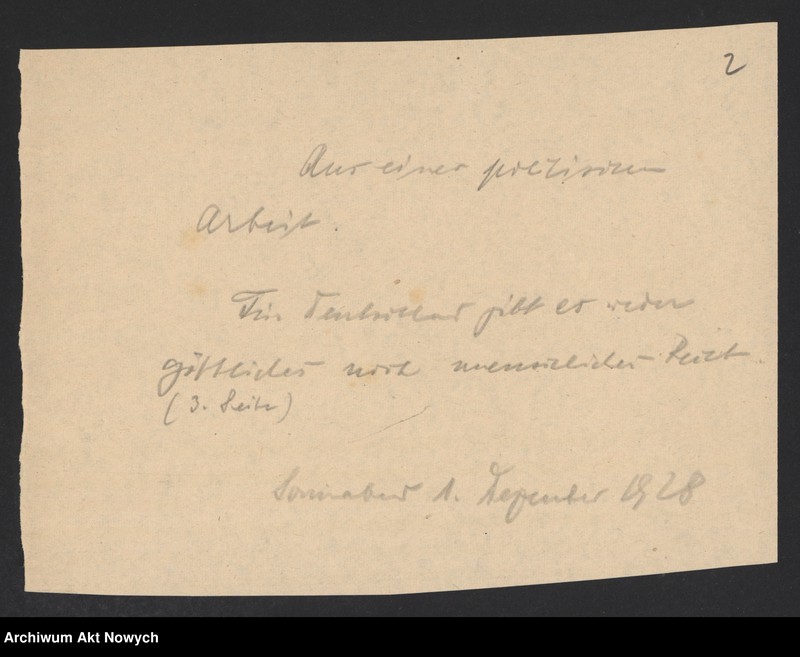 2
Aus einer politischen
Arbeit.
Für Deutschland gibt es weder
göttliches noch menschliches Recht
(3. Seite)
Sonnabend 1. Dezember 1928
Archiwum Akt Nowych